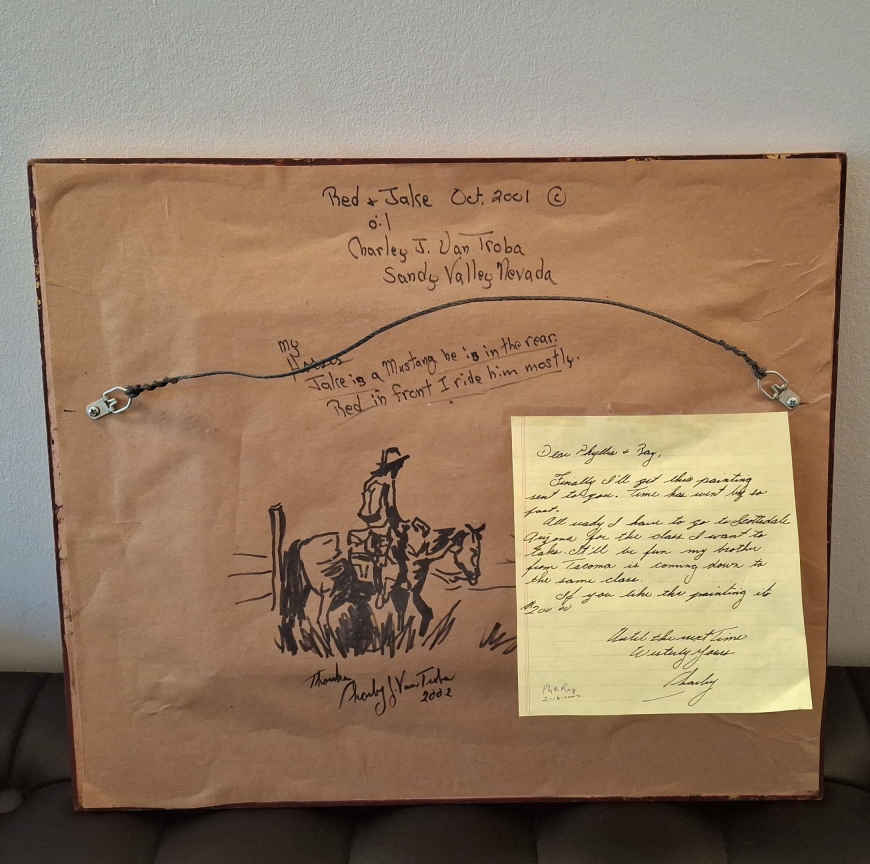 Red & Jake Oct. 2001 ©
oil
Charley J. Van Troba
Sandy Valley Nevada
My
Horses
Jake is a Mustang he is in the rear.
Red in front I ride him mostly.
Thanks
Charley J. Van Troba
2002
Dear Phyllis & Ray,
Finally I'll get this painting
sent to you. Time has went by so
fast.
All ready I have to go to Scottsdale
Arizona for the class I want to
take. It'll be fun my brother
from Tacoma is coming down to
the same class.
If you like the painting its
Until the next Time
Westerly Yours
Charley